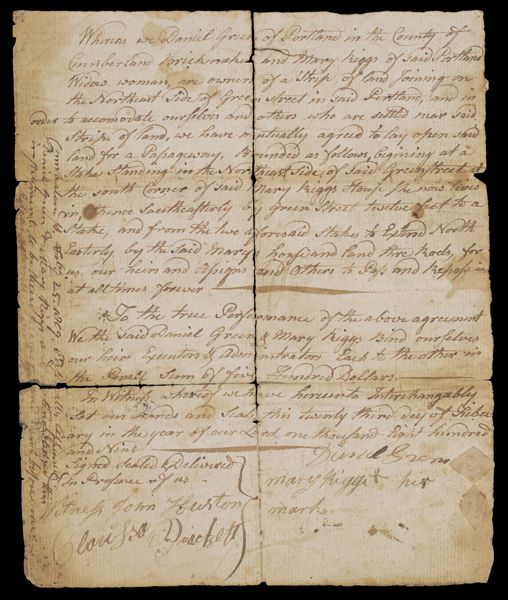 Whereas we Daniel Green of Portland in the County of
Cumberland Brickmaker and Mary Riggs of Said Portland
Widow woman, are owners of a Strip of land Joining on
the Northeast Side of Green Street in Said Portland, and in
order to accomodate ourselves and others who are settled near Said
Strip of land, we have mutually agreed to lay open said
land for a Passageway, Bounded as follows, begining at a
Stake Standing in the Northeast Side, of Said Greenstreet at
the South Corner of Said Mary Riggs House She now lives
in, thence Southeasterly by Green Street twelve feet to a
Stake, and from the two aforesaid Stakes to Extend North
Easterly by the Said Marys house and land three Rods, for
us, our heirs and Assigns and Others to Pass and Repass in
at all times forever
To the true Performance of the above agreement
We the Said Daniel Green & Mary Riggs Bind ourselves
our heirs Executors & Administrators Each to the other in
the Penal Sum of five Hundred Dollars.
In Witness whereof we have hereunto Interchangably
Set our Hands and Seals this twenty third day of Febru
ary in the year of our Lord one thousand Eight hundred
and Nine
Signed Sealed & Delivered
In Presence of us
Daniel Green
Mary Riggs her
mark
Witness John Huston
Cumberland ss Feby 25 1809